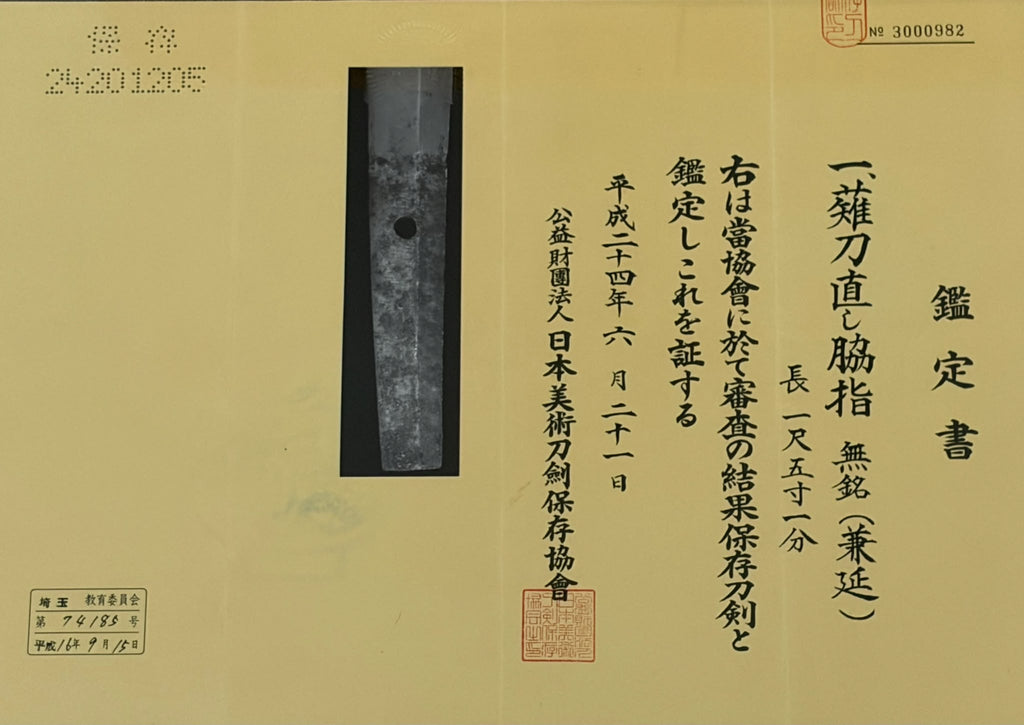 № 3000982
鑑定書
一、薙刀直し脇指 無銘(兼延)
長 一尺五寸一分
右は當協會に於て審査の結果保存刀剣と
鑑定しこれを証する
平成二十四年 六月二十一日
公益財團法人 日本美術刀劍保存協會
保存
24201205
埼玉 教育委員会
第 74185 号
平成16年 9月 15日